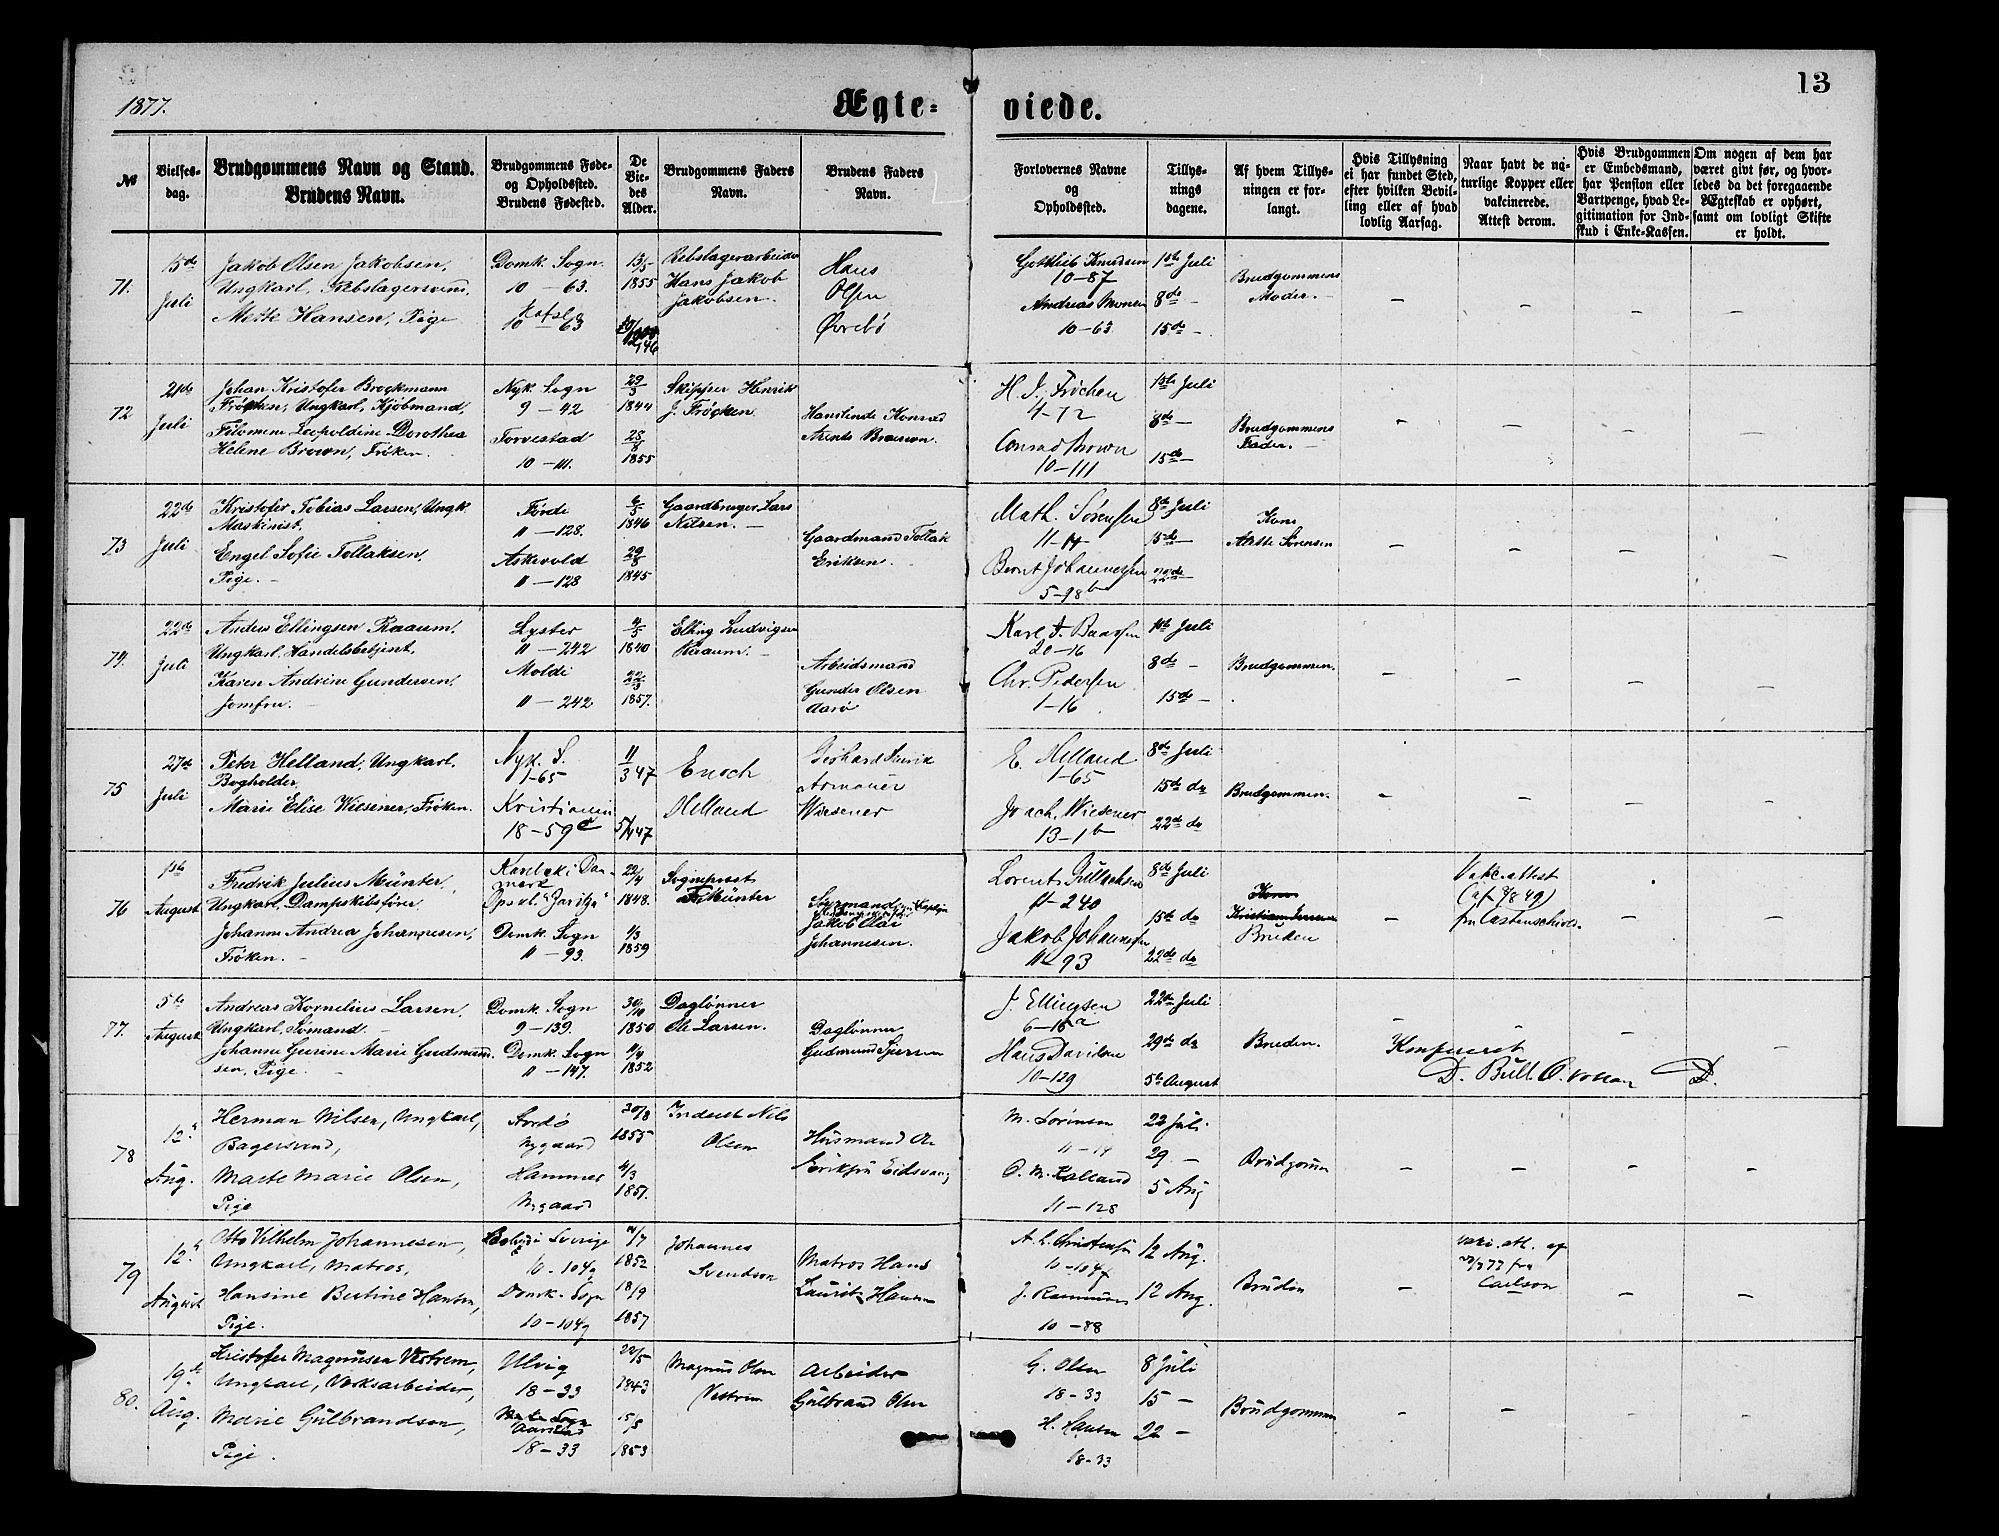 1877.
Ægte-
viede.
13
№
Vielses-
dag.
Brudgommens Navn og Stand.
Brudens Navn.
Brudgommens Føde-
og Opholdssted.
Brudens Fødested.
De
Vie-
des
Alder.
Brudgommens Faders
Navn.
Brudens Faders
Navn.
Forlovernes Navne
og
Opholdssted.
Tillys-
nings
dagene.
Af hvem Tillys-
ningen er for-
langt.
Hvis Tillysning
ei har fundet Sted,
efter hvilken Bevil-
ling eller af hvad
lovlig Aarsag.
Naar havt de na-
turlige Kopper eller
vakcinerede.
Attest derom.
Hvis Brudgommen
er Embedsmand,
har Pension eller
Vartpenge, hvad Le-
gitimation for Ind-
skud i Enke-Kassen.
Om nogen af dem har
været givt før, og hvor-
ledes da det foregaaende
Ægteskab er ophørt,
samt om lovligt Skifte
er holdt.
71.
15de
Juli
Jakob Olsen Jakobsen,
Ungkarl, Rebslagersvend,
Mette Hansen, Pige
Domk. Sogn
10 — 63.
10 — 63
13/5
1855
Rebslagerarbeider
Hans Jakob
Jakobsen.
Hans
Olsen
Øvrebø
Gottlieb Knudsen
10-87
Andreas Monsen
10-63
1ste Juli
8de —
15de —
Brudgommens
Moder. —
72
21de
Juli
Johan Kristofer Brockmann
Frøchen, Ungkarl, Kjøbmand,
Filomene Leopoldine Dorothea
Helene Brown, Frøken.
Nyk. Sogn
9 — 42
Torvestad
10 — 111.
29/3
1844
28/8
1855
Skipper Henrik
J. Frøchen
Handlende Konrad
Arents Brown.
H. J. Frøchen
4-72
Conrad Brown
10-111
1ste Juli
8de —
15de —
Brudgommens
Fader. —
73
22de
Juli
Kristofer Tobias Larsen, Ungk.
Maskinist,
Engel Sofie Tollaksen,
Pige. —
Førde
11 — 128.
Askevold
11 — 128
6/5
1846
29/8
1845
Gaardbruger Lars
Nilsen. —
Gaardmand Tollak
Eriksen. —
Math. Sørensen
11-14
Bernt Johannesen
5-98b
8de Juli
15de —
22de —
Kone
Mette Sørensen
74.
22de
Juli
Anders Ellingsen Raaum,
Ungkarl, Handelsbetjent,
Karen Andrine Gundersen,
Jomfru. —
Lyster
11 — 242
Molde
11 — 242
4/5
1840
22/3
1857.
Elling Ludvigsen
Raaum. —
Arbeidsmand
Gunder Olsen
Aarø
Karl J. Baarsen
20-16
Chr. Pedersen
1-16
1ste Juli
8de —
15de —
Brudgommen.
75
27de
Juli
Peter Helland, Ungkarl,
Bogholder,
Marie Elise Wiesener, Frøken.
Nyk. S.
1-65
Kristiania
18-59c
11/3 47
5/1 47
Enoch
Helland
Gerhard Henrik
Armauer
Wiesener
E. Helland
1-65
Joach. Wiesener
13-1b
8de Juli
15de do
22de do
Brudgommen.
76
1ste
August
Fredrik Julius Münter,
Ungkarl, Dampskibsfører
Johanne Andrea Johannesen,
Frøken. —
Karlebæk i Dan-
mark
Domk. Sogn
11 — 93.
22/4
1848.
1/3
1859
Sogneprest
F. Münter
Styrmand
Jakob Olai
Johannesen.
11-240
Jakob Johannesen
11-93
8de Juli
15de do
22de do
Bruden
Vakc. attest
(af 7/8 49)
fra Castenschiold.
77.
5te
August
Andreas Kornelius Larsen,
Ungkarl, Sømand. —
Johanne Gurine Marie Gudmund-
sen, Pige. —
Domk. Sogn
9 — 139.
Domk. Sogn
11 — 147.
30/10
1850
4/4
1852
Daglønner
Ole Larsen.
Daglønner
Gudmund Sjursen
J. Ellingsen
6-18a
Hans Davidsen
10-129
22de Juli
29de do
5te August
Bruden.
Konfereret
D. Bull.
78
12te
Aug.
Herman Nilsen, Ungkarl,
Bagersvend,
Marte Marie Olsen,
Pige
Stordø
Nygaard
Hammer
Nygaard
30/8
1855
4/3
1851.
Inderst Nils
Olsen
Husmand Ole
M. Sørensen
11-14
O. M. Kalland
11-128
22 Juli
29 —
5 Aug
Brudgom
79
12te
August
Otto Vilhelm Johannesen,
Ungkarl, Matros,
Hansine Bertine Hansen,
Pige.
10-104g
Domk. Sogn
10-104g
4/7
1852
18/9
1857
Johannes
Svendsen
Matros Hans
Laurits Hansen
A. L. Christensen
10-104g
J. Rasmussen
10-88
12 Aug.
12 Aug.
Bruden
Vakc. att. af
fra
Carlson
80.
19de
Aug.
Kristofer Magnusen Vestrem,
Ungkarl, Verksarbeider,
Marie Gulbrandsen,
Pige.
Ulvig
18-33
18-33
22/5
1843
15/8
1853
Magnus Olsen
Vestrem
Arbeider
Gulbrand Olsen
G. Olsen
18-33
H. Hansen
18-33
8 Juli
15 —
22 —
Brudgommen